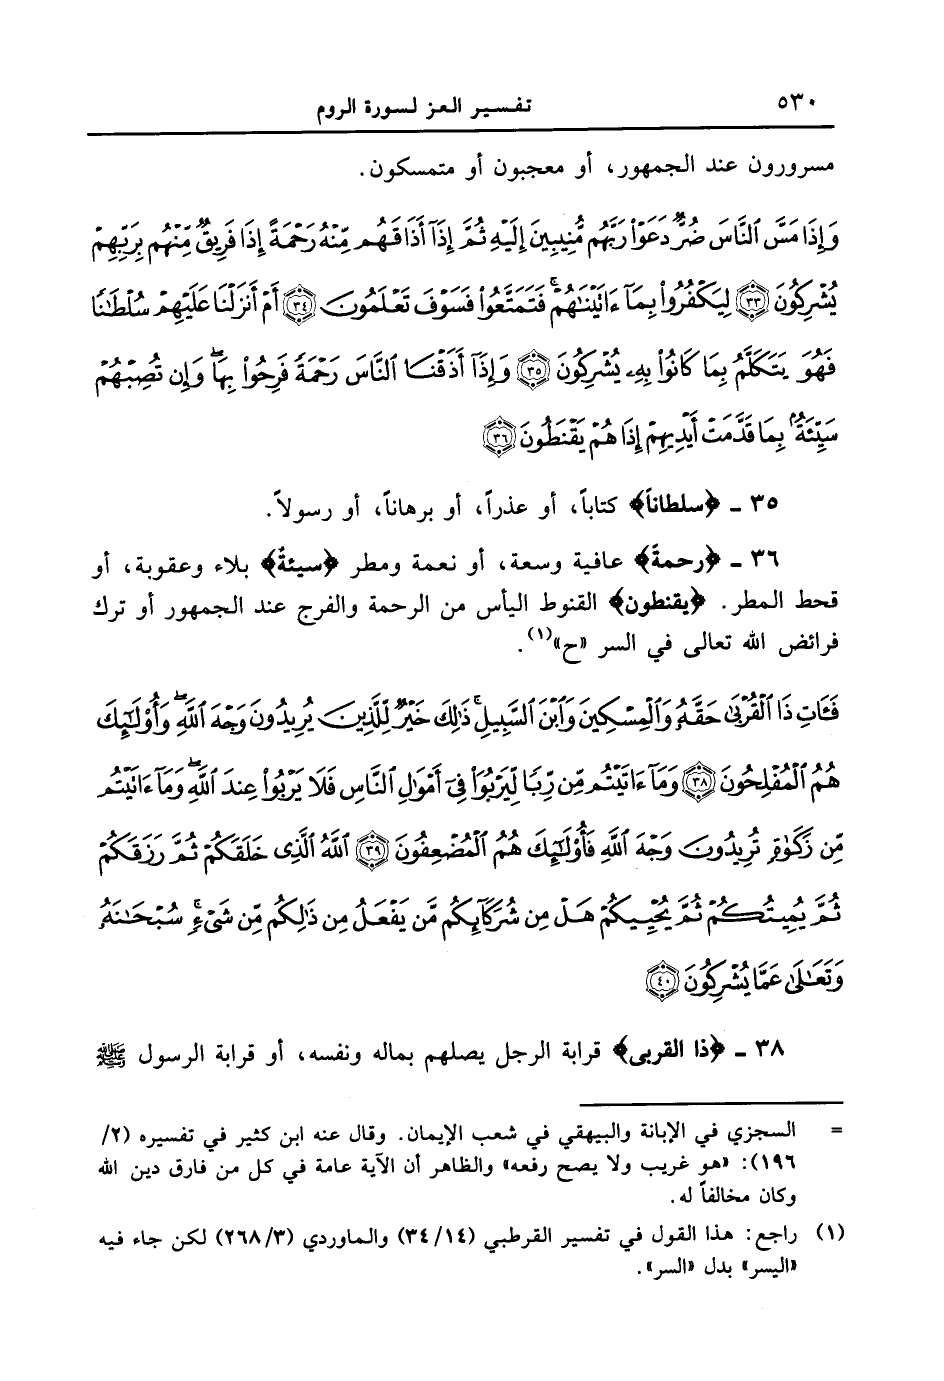 ٥٣٠ تفسير العز لسورة الروم
مسرورون عند الجمهور، أو معجبون أو متمسكون.
وَإِذَا مَسَّ ٱلنَّاسَ ضُرٌّ دَعَوْا۟ رَبَّهُم مُّنِيبِينَ إِلَيْهِ ثُمَّ إِذَآ أَذَاقَهُم مِّنْهُ رَحْمَةً إِذَا فَرِيقٌ مِّنْهُم بِرَبِّهِمْ
يُشْرِكُونَ ٣٣ لِيَكْفُرُوا۟ بِمَآ ءَاتَيْنَٰهُمْ ۚ فَتَمَتَّعُوا۟ فَسَوْفَ تَعْلَمُونَ ٣٤ أَمْ أَنزَلْنَا عَلَيْهِمْ سُلْطَٰنًا
فَهُوَ يَتَكَلَّمُ بِمَا كَانُوا۟ بِهِۦ يُشْرِكُونَ ٣٥ وَإِذَآ أَذَقْنَا ٱلنَّاسَ رَحْمَةً فَرِحُوا۟ بِهَا ۖ وَإِن تُصِبْهُمْ
سَيِّئَةٌۢ بِمَا قَدَّمَتْ أَيْدِيهِمْ إِذَا هُمْ يَقْنَطُونَ ٣٦
٣٥ ـ ﴿سلطاناً﴾ كتاباً، أو عذراً، أو برهاناً، أو رسولاً.
٣٦ ـ ﴿رحمةً﴾ عافية وسعة، أو نعمة ومطر ﴿سيئةٌ﴾ بلاء وعقوبة، أو
قحط المطر. ﴿يقنطون﴾ القنوط اليأس من الرحمة والفرج عند الجمهور أو ترك
فرائض الله تعالى في السر «ح»(١).
فَـَٔاتِ ذَا ٱلْقُرْبَىٰ حَقَّهُۥ وَٱلْمِسْكِينَ وَٱبْنَ ٱلسَّبِيلِ ۚ ذَٰلِكَ خَيْرٌ لِّلَّذِينَ يُرِيدُونَ وَجْهَ ٱللَّهِ ۖ وَأُو۟لَٰٓئِكَ
هُمُ ٱلْمُفْلِحُونَ ٣٨ وَمَآ ءَاتَيْتُم مِّن رِّبًا لِّيَرْبُوَا۟ فِىٓ أَمْوَٰلِ ٱلنَّاسِ فَلَا يَرْبُوا۟ عِندَ ٱللَّهِ ۖ وَمَآ ءَاتَيْتُم
مِّن زَكَوٰةٍ تُرِيدُونَ وَجْهَ ٱللَّهِ فَأُو۟لَٰٓئِكَ هُمُ ٱلْمُضْعِفُونَ ٣٩ ٱللَّهُ ٱلَّذِى خَلَقَكُمْ ثُمَّ رَزَقَكُمْ
ثُمَّ يُمِيتُكُمْ ثُمَّ يُحْيِيكُمْ هَلْ مِن شُرَكَآئِكُم مَّن يَفْعَلُ مِن ذَٰلِكُم مِّن شَىْءٍ ۚ سُبْحَٰنَهُۥ
وَتَعَٰلَىٰ عَمَّا يُشْرِكُونَ ٤٠
٣٨ ـ ﴿ذا القربى﴾ قرابة الرجل يصلهم بماله ونفسه، أو قرابة الرسول ﷺ
= السجزي في الإبانة والبيهقي في شعب الإيمان. وقال عنه ابن كثير في تفسيره (٢/
١٩٦): «هو غريب ولا يصح رفعه» والظاهر أن الآية عامة في كل من فارق دين الله
وكان مخالفاً له.
(١) راجع: هذا القول في تفسير القرطبي (٣٤/١٤) والماوردي (٢٦٨/٣) لكن جاء فيه
«اليسر» بدل «السر».